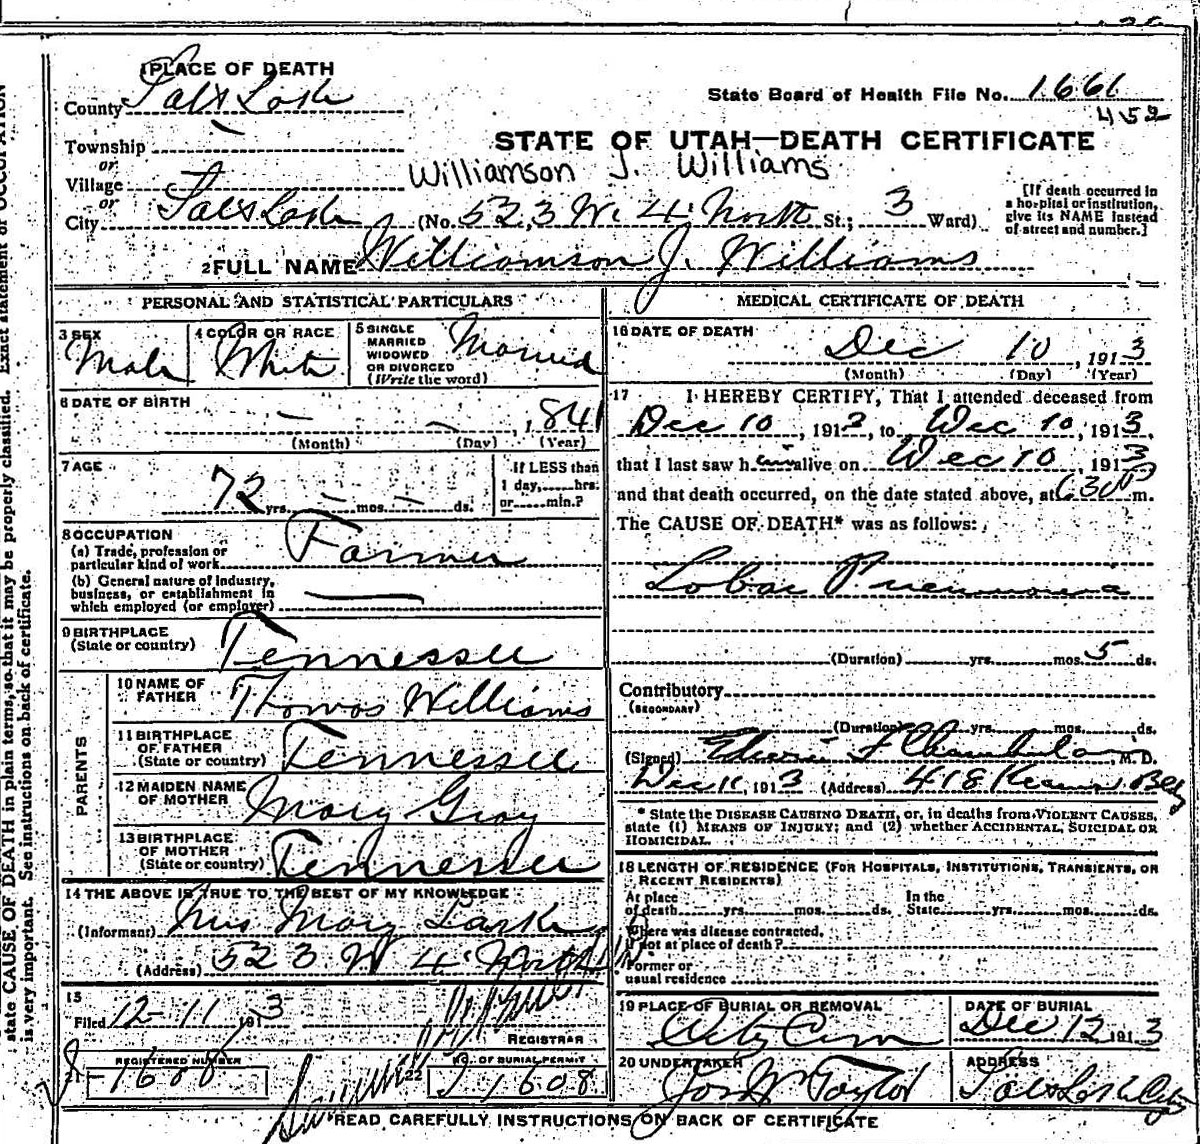 1 PLACE OF DEATH
County Salt Lake
State Board of Health File No. 1661
452
STATE OF UTAH—DEATH CERTIFICATE
Township
or
Village
Williamson J. Williams
or
City Salt Lake (No. 523 W. 4 North St.; 3 Ward)
[If death occurred in a hospital or institution, give its NAME instead of street and number.]
2 FULL NAME Williamson J. Williams
PERSONAL AND STATISTICAL PARTICULARS
3 SEX
Male
4 COLOR OR RACE
White
5 SINGLE
MARRIED
WIDOWED
OR DIVORCED
(Write the word)
Married
6 DATE OF BIRTH
— — , 1841
(Month) (Day) (Year)
7 AGE
72 yrs. — mos. — ds.
If LESS than
1 day, hrs.
or min.?
8 OCCUPATION
(a) Trade, profession or
particular kind of work
Farmer
(b) General nature of industry,
business, or establishment in
which employed (or employer)
9 BIRTHPLACE
(State or country)
Tennessee
PARENTS
10 NAME OF
FATHER
Thomas Williams
11 BIRTHPLACE
OF FATHER
(State or country)
Tennessee
12 MAIDEN NAME
OF MOTHER
Mary Gray
13 BIRTHPLACE
OF MOTHER
(State or country)
Tennessee
14 THE ABOVE IS TRUE TO THE BEST OF MY KNOWLEDGE
(Informant) Mrs Mary
(Address) 523 W 4 North
15
Filed 12-11 1913
REGISTRAR
REGISTERED NUMBER
21
22
NO. OF BURIAL PERMIT
1608
MEDICAL CERTIFICATE OF DEATH
16 DATE OF DEATH
Dec 10, 1913
(Month) (Day) (Year)
17 I HEREBY CERTIFY, That I attended deceased from
Dec 10, 1913, to Dec 10, 1913,
that I last saw him alive on Dec 10, 1913
and that death occurred, on the date stated above, at 630 P m.
The CAUSE OF DEATH* was as follows:
Lobar Pneumonia
(Duration) yrs. mos. 5 ds.
Contributory
(SECONDARY)
(Duration) yrs. mos. ds.
(Signed) F Chamberlain, M. D.
Dec 11, 1913 (Address) 418 Kearns Bldg
* State the DISEASE CAUSING DEATH, or, in deaths from VIOLENT CAUSES,
state (1) MEANS OF INJURY; and (2) whether ACCIDENTAL, SUICIDAL OR
HOMICIDAL.
18 LENGTH OF RESIDENCE (FOR HOSPITALS, INSTITUTIONS, TRANSIENTS, OR
RECENT RESIDENTS)
At place In the
of death yrs. mos. ds. State yrs. mos. ds.
Where was disease contracted,
if not at place of death?
Former or
usual residence
19 PLACE OF BURIAL OR REMOVAL
City Cem
DATE OF BURIAL
Dec 12 1913
20 UNDERTAKER
Jos W Taylor
ADDRESS
Salt Lake City
READ CAREFULLY INSTRUCTIONS ON BACK OF CERTIFICATE
state CAUSE OF DEATH in plain terms, so that it may be properly classified. Exact statement of OCCUPATION
is very important. See instructions on back of certificate.